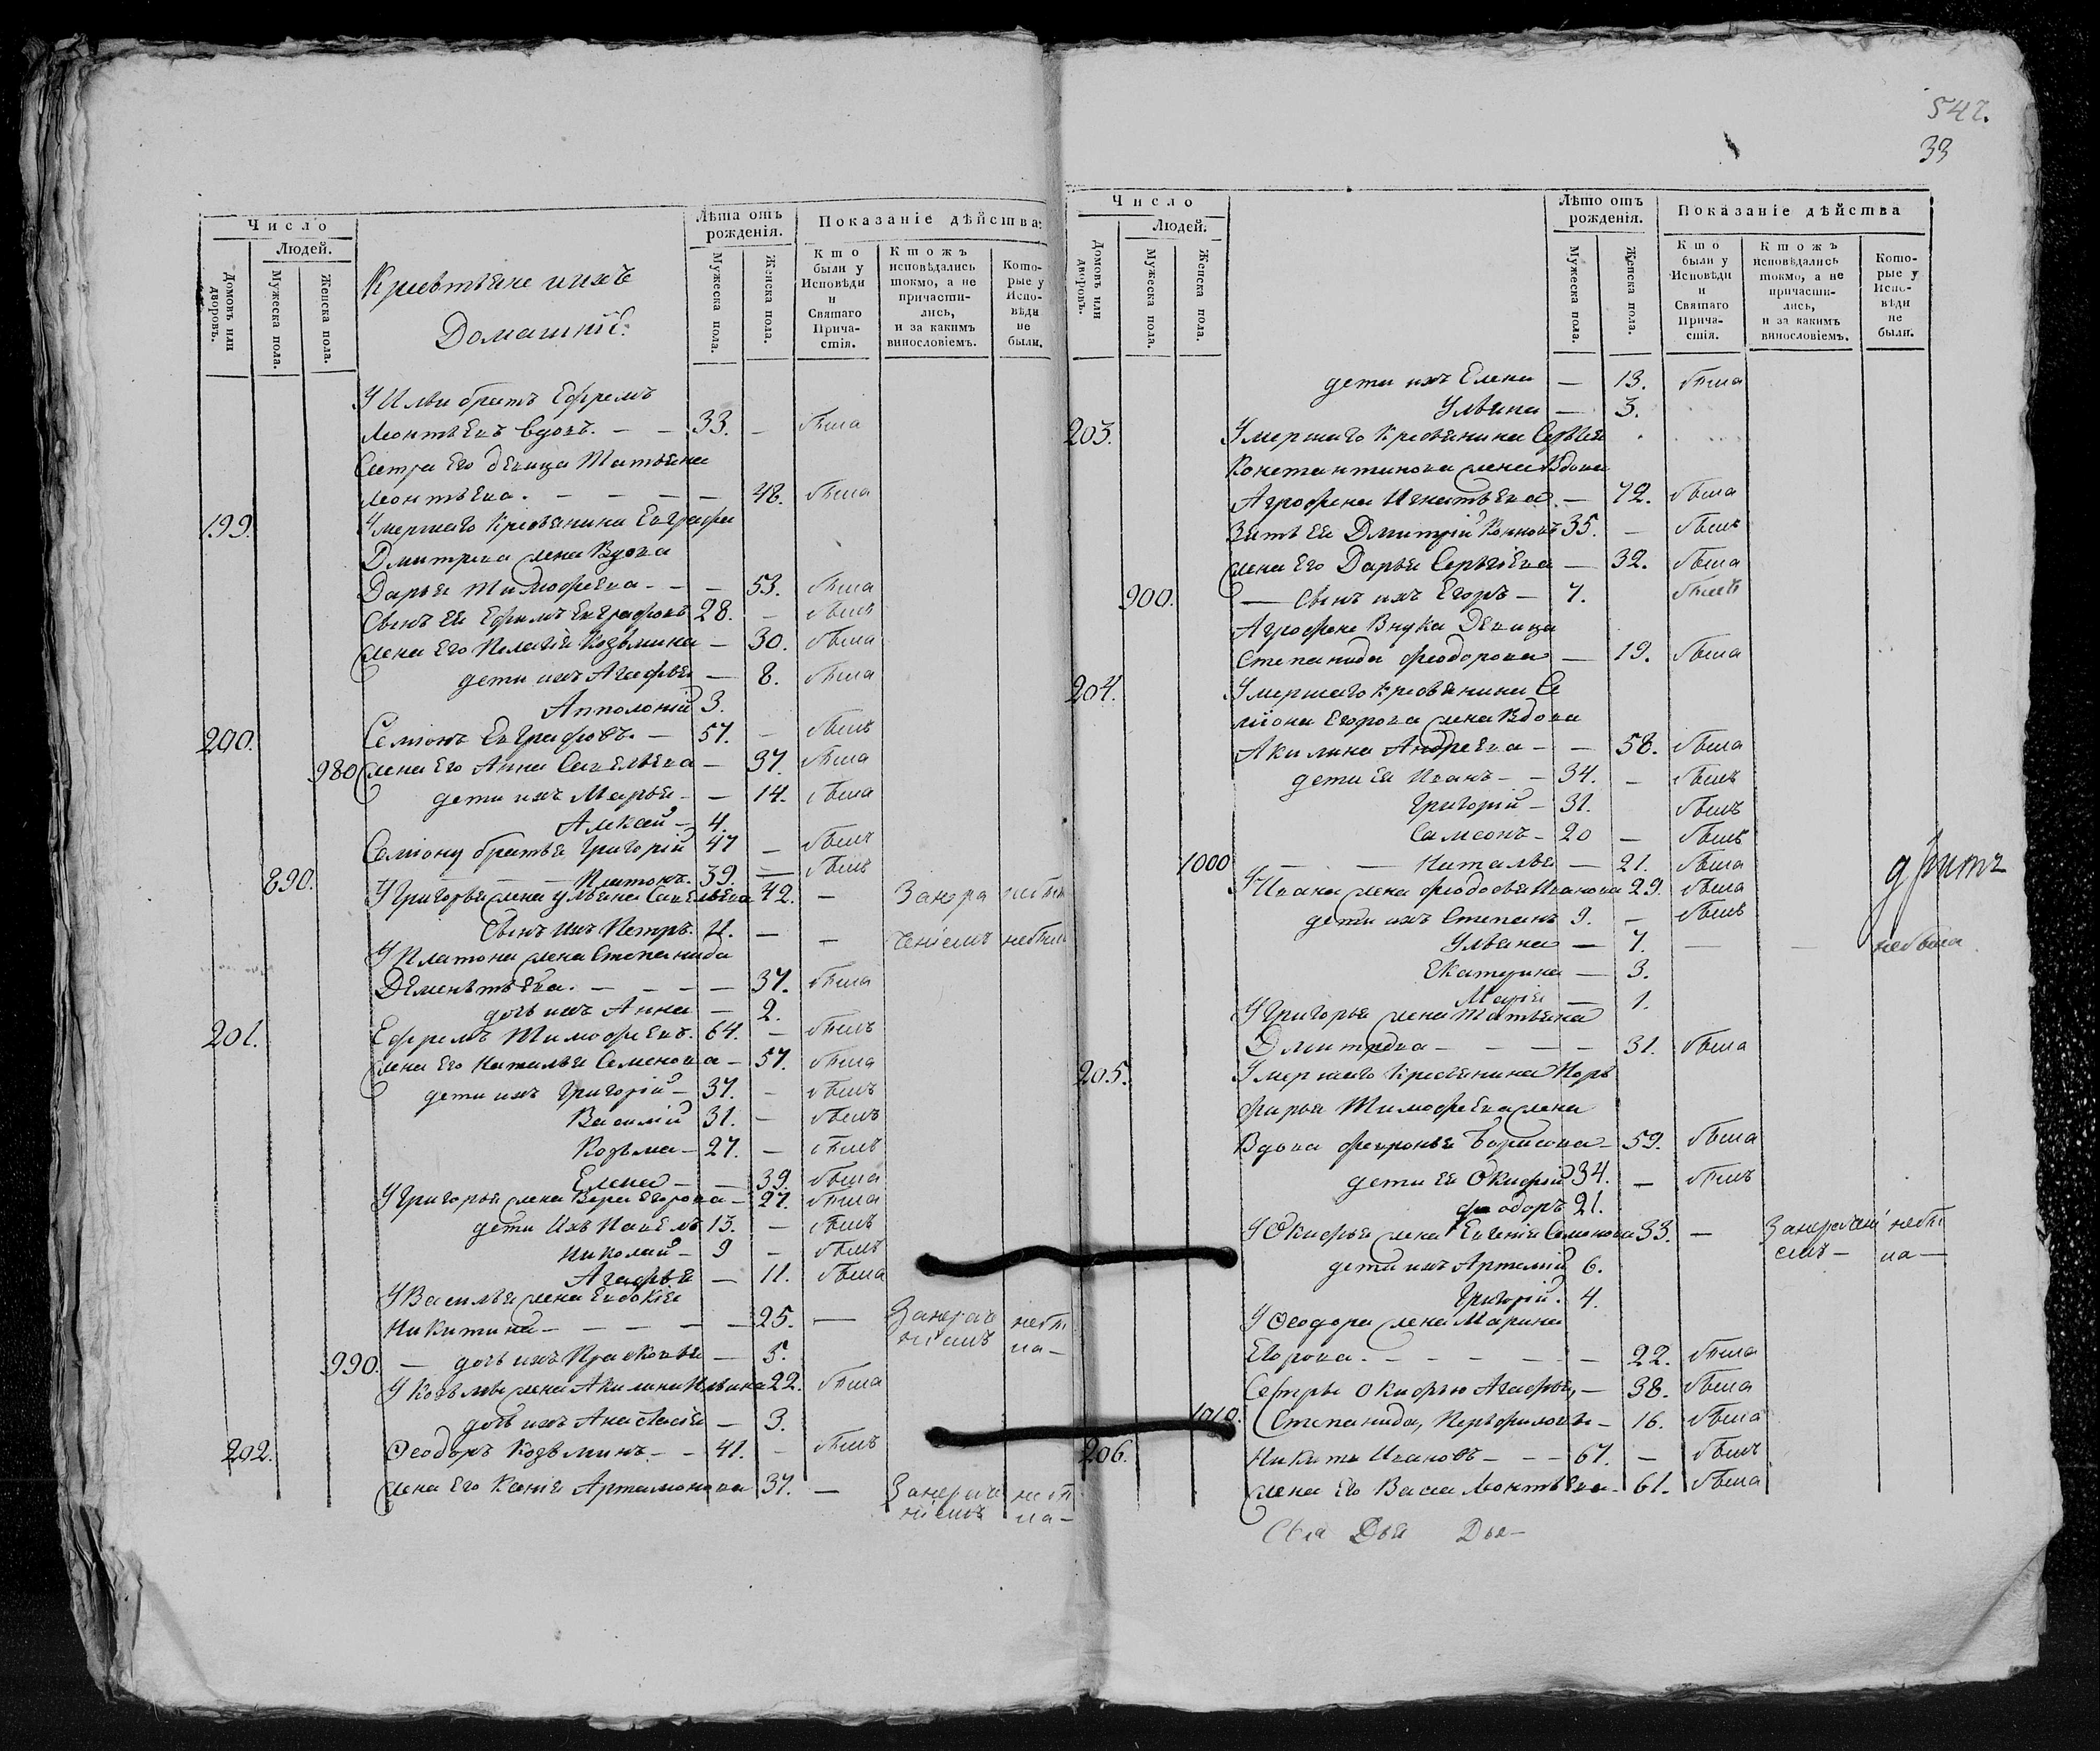 Число
Людей.
Домовъ или дворовъ.
Мужеска пола.
Женска пола.
Крестьяне и ихъ
Домашніе.
Лѣта отъ рожденія.
Мужеска пола.
Женска пола.
Показаніе дѣйства:
Кто были у Исповѣди и Святаго Прича-стія.
Ктожъ исповѣдались токмо, а не причасти-лись, и за какимъ винословіемъ.
Кото-рые у Испо-вѣди не были.
У Ильи братъ Ефремъ
Леонтьевъ вдовъ. — — 33. — былъ
Сестра Его девица Татьяна
Леонтьева. — — — — 48. была
199. Умершаго Крестьянина Евграфа
Дмитрева жена Вдова
Дарья Тимофеева — — — 53. была
Сынъ Ея Ефимъ Евграфовъ 28. — былъ
жена Его Пелагія Козьмина — 30. была
дети ихъ Агафья — 8. была
Апполоній 3.
200. Семіонъ Евграфовъ. — 57. — былъ
980 жена Его Анна Савельева — 37. была
дети ихъ Марья — — 14. была
Алексѣй — 4.
Семіону братья Григорій 47 — былъ
890. — — Платонъ. 39. — былъ
У Григорья жена Ульяна Савельева 42. — Занера небы
Сынъ ихъ Петръ. 11. — — ченіемъ небыл
У Платона жена Степанида
Дементьева. — — — — 37. была
дочь ихъ Анна — 2.
201. Ефремъ Тимофеевъ. 64. — былъ
жена Его Наталья Семенова — 57. была
дети ихъ Григорій — 37. — былъ
Василій 31. — былъ
Козьма — 27. — былъ
Елена — — 39. была
У Григорья жена Вера Егорова — 27. была
дети Ихъ Павелъ 13. — былъ
Николай — 9 — былъ
Агафья — 11. была
У Василья жена Евдокія
Никитина — — — — — 25. — Занерач небы
ніемъ ла —
990. — дочь ихъ Прасковья — 5.
У Козьмы жена Акилина Ильина 22. была
дочь ихъ Анастасія — 3.
202. Ѳеодоръ Козьминъ — — 41. — былъ
жена Его Ксенія Артамонова 37. — Занерач небы
ніемъ ла —
542.
33
Число
Людей.
Домовъ или дворовъ.
Мужеска пола.
Женска пола.
Лѣто отъ рожденія.
Мужеска пола.
Женска пола.
Показаніе дѣйства
Кто были у Исповѣди и Святаго Прича-стія.
Ктожъ исповѣдались токмо, а не причасти-лись, и за какимъ винословіемъ.
Кото-рые у Испо-вѣди не были.
дети ихъ Елена — 13. была
Ульяна — 3.
203. Умершаго Крестьянина Сергѣя
Константинова жена Вдова
Агрофена Игнатьева — 72. была
Зять Ея Дмитрій 35. — былъ
жена Его Дарья Сергѣева — 32. была
900. — Сынъ ихъ Егоръ — 7. былъ
Агрофене Внука Девица
Степанида Феодорова — 19. была
204. Умершаго Крестьянина Се
міона Егорова жена Вдова
Акилина Андреева — — 58. была
дети Ея Иванъ — — 34. — былъ
Григорій — 31. былъ
Самсонъ — 20 — былъ
1000 — — Наталья — 21. была
У Ивана жена Феодосья Иванова 29. была
дети ихъ Степанъ 9. — былъ
Ульяна — 7. — — небыла
Екатерина — 3.
Марія — 1.
У Григорья жена Татьяна
Дмитрева — — — — 31. была
205. Умершаго Крестьянина Порѳ
фирья Тимофеева жена
Вдова Февронья Борисова — 59. была
дети Ея Окифій 34. — былъ
Феодоръ 21.
У Окифья жена Евгенія Семенова 33. — Занерачені небы
емъ — ла —
дети ихъ Артемій 6.
Григорій. 4.
У Ѳеодора жена Марина
Егорова. — — — — — 22. была
Сестры Окифью Агафья, — 38. была
1010. Степанида, Перфильевы — 16. была
206. Никита Ивановъ — — — 67. — былъ
жена Его Васса Леонтьева — 61. была